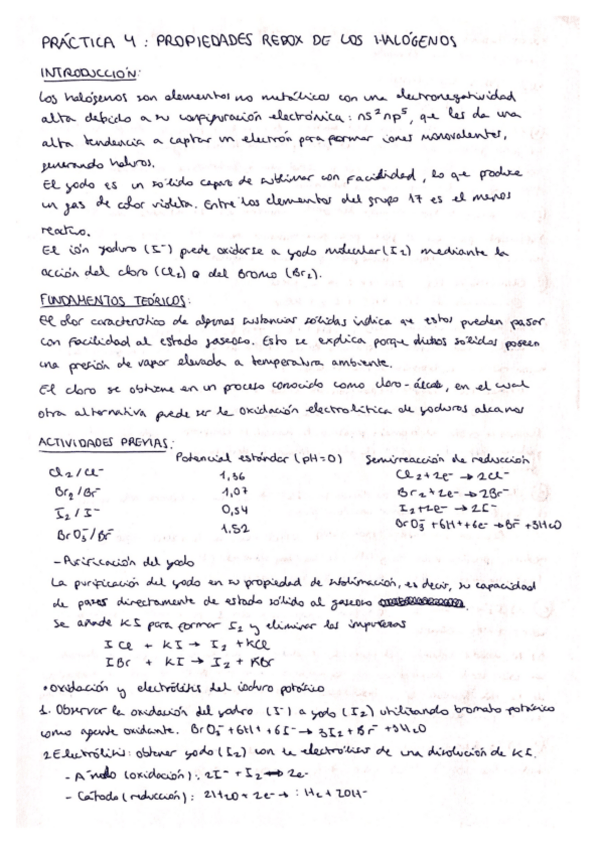 PRÁCTICA 4 : PROPIEDADES REDOX DE LOS HALÓGENOS
INTRODUCCIÓN:
Los halógenos son elementos no metálicos con una electronegatividad
alta debido a su configuración electrónica: ns²np⁵, que les da una
alta tendencia a captar un electrón para formar iones monovalentes,
generando haluros.
El yodo es un sólido capaz de sublimar con facilidad, lo que produce
un gas de color violeta. Entre los elementos del grupo 17 es el menos
reactivo.
El ión yoduro (I⁻) puede oxidarse a yodo molecular (I₂) mediante la
acción del cloro (Cl₂) o del Bromo (Br₂).
FUNDAMENTOS TEÓRICOS:
El olor característico de algunas sustancias sólidas indica que estas pueden pasar
con facilidad al estado gaseoso. Esto se explica porque dichos sólidos poseen
una presión de vapor elevada a temperatura ambiente.
El cloro se obtiene en un proceso conocido como cloro-álcali, en el cual
otra alternativa puede ser la oxidación electrolítica de yoduros alcanos
ACTIVIDADES PREVIAS:
Potencial estándar (pH=0) Semirreacción de reducción
Cl₂/Cl⁻ 1,36 Cl₂+2e⁻ → 2Cl⁻
Br₂/Br⁻ 1,07 Br₂+2e⁻ → 2Br⁻
I₂/I⁻ 0,54 I₂+2e⁻ → 2I⁻
BrO₃⁻/Br⁻ 1.52 BrO₃⁻ +6H⁺+6e⁻ → Br⁻ +3H₂O
- Purificación del yodo
La purificación del yodo en su propiedad de sublimación, es decir, su capacidad
de pasar directamente de estado sólido al gaseoso
Se añade KI para formar I₂ y eliminar las impurezas
I Cl + KI → I₂ + KCl
IBr + KI → I₂ + KBr
• Oxidación y electrólisis del ioduro potásico
1. Observar la oxidación del yoduro (I⁻) a yodo (I₂) utilizando bromato potásico
como agente oxidante. BrO₃⁻ +6H⁺ +6I⁻ → 3I₂ + Br⁻ +3H₂O
2 Electrólisis: obtener yodo (I₂) con la electrólisis de una disolución de KI.
- Ánodo (oxidación): 2I⁻ + I₂ → 2e⁻
- Cátodo (reducción): 2H₂O + 2e⁻ → : H₂ + 2OH⁻